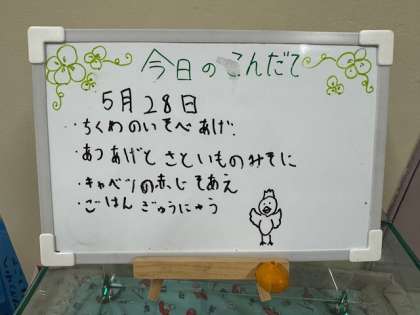 今日のこんだて
5月28日
・ちくわのいそべあげ
・あつあげとさといものみそに
・キャベツの赤じそあえ
・ごはん ぎゅうにゅう